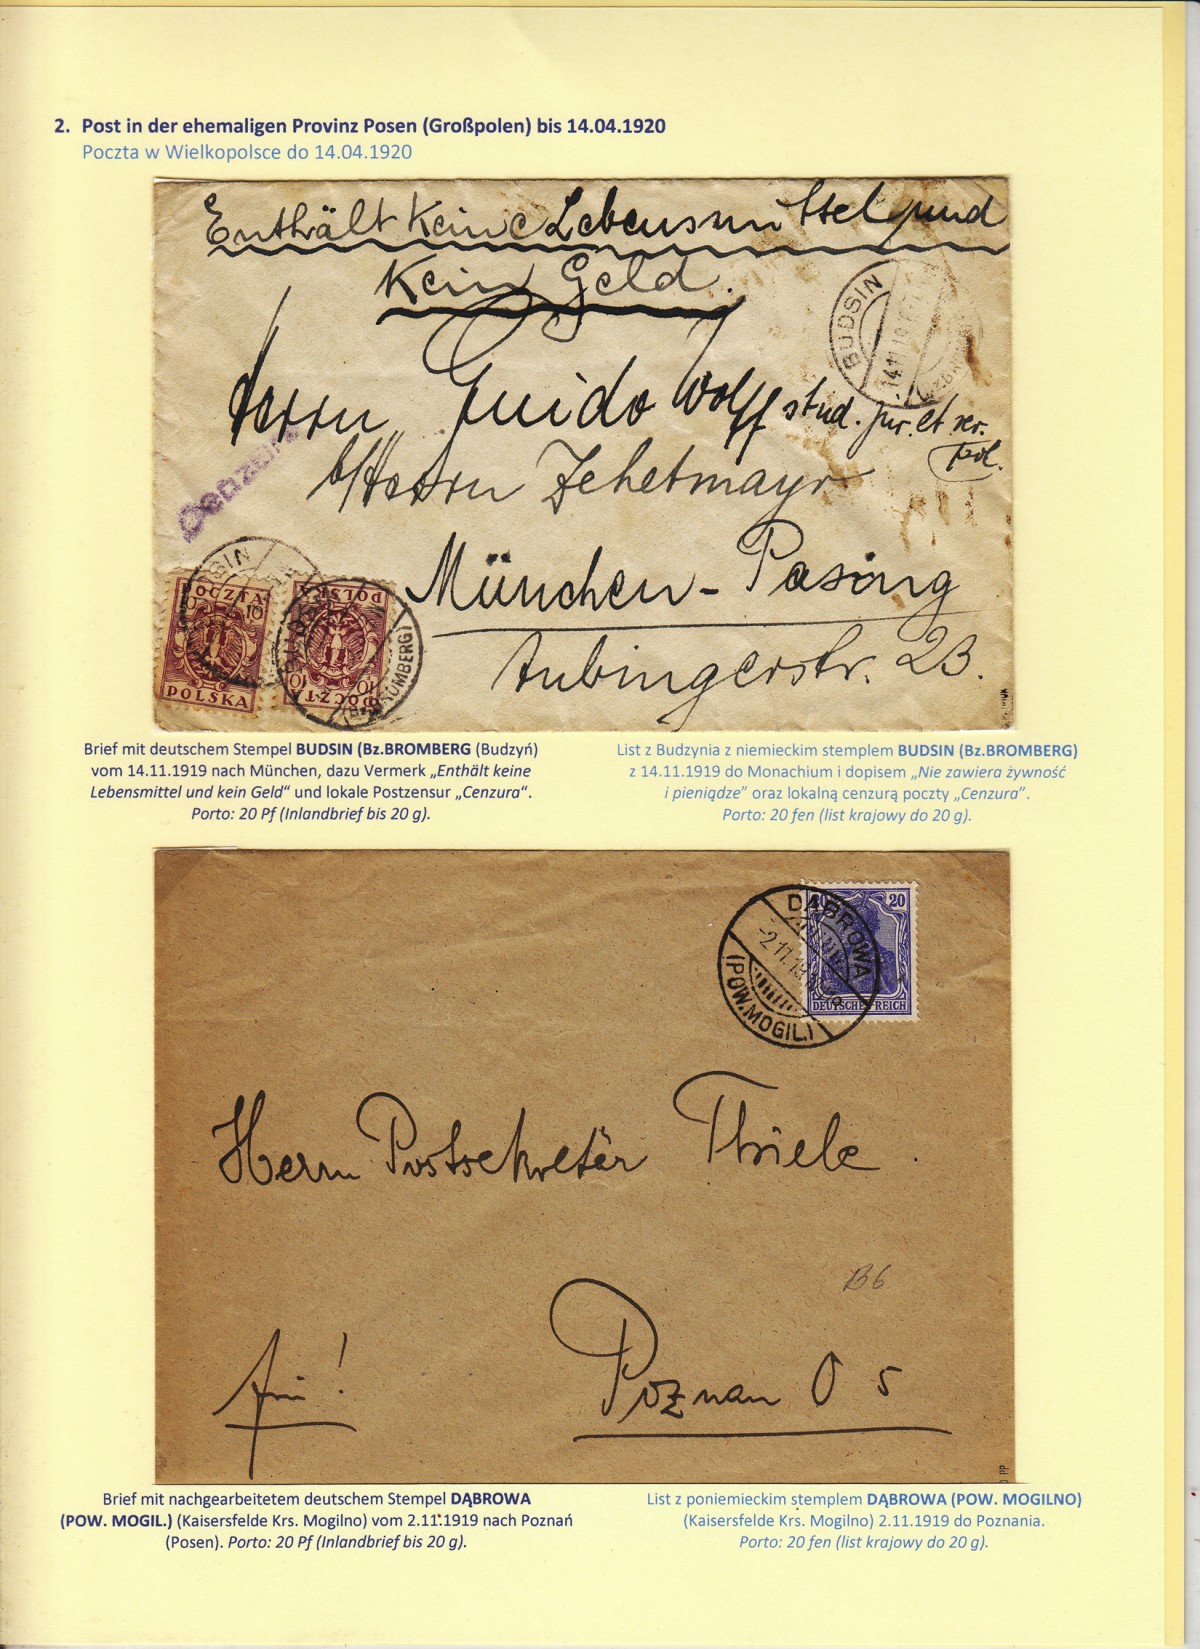 2. Post in der ehemaligen Provinz Posen (Großpolen) bis 14.04.1920
Poczta w Wielkopolsce do 14.04.1920
Enthält keine Lebensmittel und
kein Geld.
BUDSIN
14.11.19
Herrn Guido Wolff stud. jur. et rer.
pol.
b/Herrn Zehetmayr
Cenzura
München-Pasing
Aubingerstr. 23.
BUDSIN
(Bz. BROMBERG)
POCZTA
10 10
POLSKA
POLSKA
10 10
POCZTA
Brief mit deutschem Stempel BUDSIN (Bz.BROMBERG (Budzyń)
vom 14.11.1919 nach München, dazu Vermerk „Enthält keine
Lebensmittel und kein Geld“ und lokale Postzensur „Cenzura“.
Porto: 20 Pf (Inlandbrief bis 20 g).
List z Budzynia z niemieckim stemplem BUDSIN (Bz.BROMBERG)
z 14.11.1919 do Monachium i dopisem „Nie zawiera żywność
i pieniądze” oraz lokalną cenzurą poczty „Cenzura”.
Porto: 20 fen (list krajowy do 20 g).
DĄBROWA
-2.11.19
(POW. MOGIL.)
20 20
DEUTSCHES REICH
Herrn Postsekretär Thiele.
B6
Poznan O 5
PP
Brief mit nachgearbeitetem deutschem Stempel DĄBROWA
(POW. MOGIL.) (Kaisersfelde Krs. Mogilno) vom 2.11.1919 nach Poznań
(Posen). Porto: 20 Pf (Inlandbrief bis 20 g).
List z poniemieckim stemplem DĄBROWA (POW. MOGILNO)
(Kaisersfelde Krs. Mogilno) 2.11.1919 do Poznania.
Porto: 20 fen (list krajowy do 20 g).